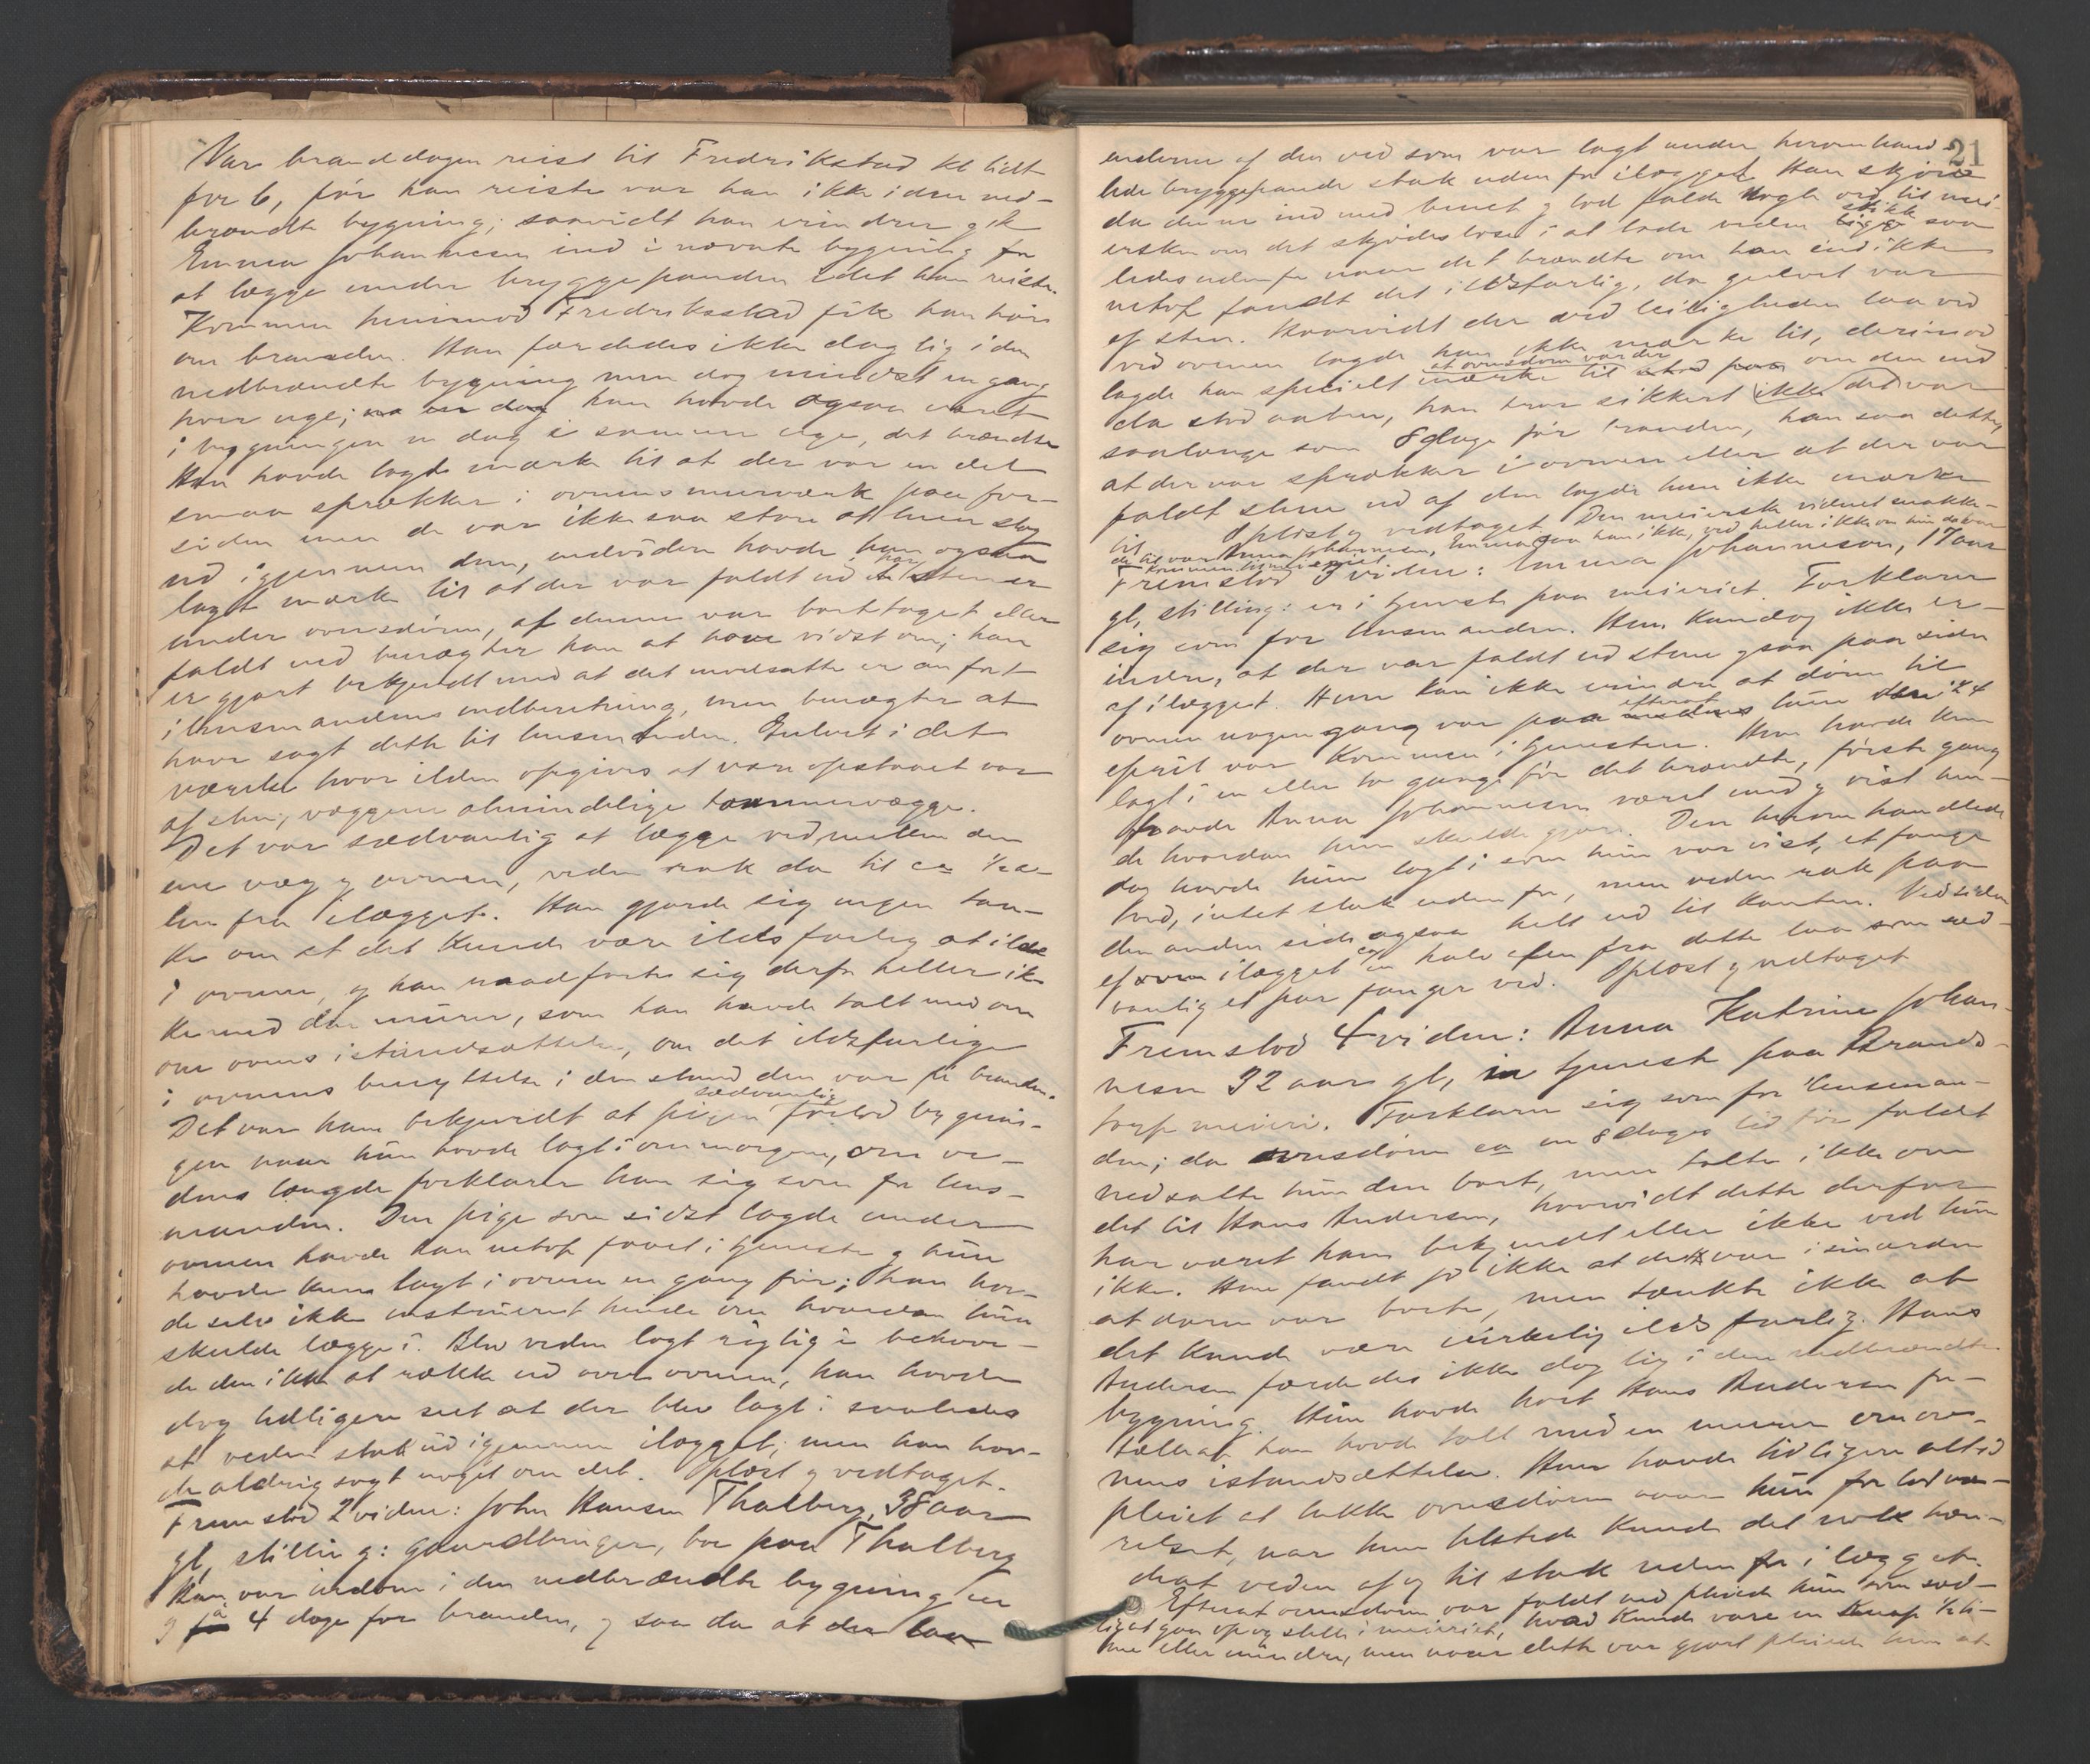 Var branddagen reist til Fredrikstad kl lidt
før 6, før han reiste var han ikke i den ned-
brændte bygning; saavidt han erindrer gik
Emma Johannesen ind i nævnte bygning for
at lægge under bryggepanden idet han reiste.
Kommen henimod Fredriksstad fik han høre
om branden. Han færdedes ikke daglig i den
nedbrændte bygning men dog mindst en gang
hver uge; han havde ogsaa været
i bygningen en dag i samme uge, det brændte
Han havde lagt mærke til at der var en del
smaa sprækker i ovnens murværk paa for-
siden men de var ikke saa store at luen slog
ud igjennem dem, endvidere havde han ogsaa
lagt mærke til at der var faldt ud et par stener
under ovnsdøren, at denne var borttaget eller
faldt ned benægter han at have vidst om; han
er gjort bekjendt med at det modsatte er anført
i lensmandens indberetning, men benægter at
have sagt dette til lensmanden. Gulvet i det
værelse hvor ilden opgives at være opstaaet var
af sten, væggene almindelige tømmervægge.
Det var sædvanlig at lægge ved mellem den
ene væg og ovnen, veden rak da til ca ½ a-
len fra ilægget. Han gjorde sig ingen tan-
ke om at det kunde være ildsfarlig at ilde
i ovnen, og han raadførte sig derfor heller ik-
ke med den murer, som han havde talt med om
om ovnens istandsættelse, om det ildsfarlige
i ovnens benyttelse i den stand den var før branden.
Det var ham bekjendt at pigen sædvanlig forlod bygnin-
gen naar hun havde lagt i om morgenen, om ve-
dens længde forklarer han sig som for lens-
manden. Den pige som sidst lagde under
ovnen havde han netop faaet i tjeneste og hun
havde kun lagt i ovnen en gang før; han hav-
de selv ikke instrueret hende om hvordan hun
skulde lægge i. Blev veden lagt rigtig i behøve-
de den ikke at række ud over ovnen, han havde
dog tidligere seet at der blev lagt i saaledes
at veden stak ud igjennem ilægget; men han hav-
de aldrig sagt noget om det. Oplæst og vedtaget.
Fremstod 2 vidne: John Hansen Thalberg, 38 aar
gl, stilling: gaardbruger, bor paa Thalberg
Han var indom i den nedbrændte bygning en
3 à 4 dage før branden, og saa da at der laa
21
enderne af den ved som var lagt under heromhand-
lede bryggepande stak uden for ilægget. Han skjøv
da denne ind med benet og lod falde nogle ord til mei-
ersken om det skjødesløse i at lade veden ligge stikke saa
ledes udenfor naar det brændte om han end ikke
netop fandt det ildsfarlig, da gulvet var
af sten. Hvorvidt der ved leiligheden laa ved
ved ovnen lagde han ikke mærke til, derimod
lagde han specielt mærke til at ovnsdøren var der om den end
da stod aaben, han tror sikkert ikke det var
saalænge som 8 dage før branden, han saa dette,
at der var sprækker i ovnen eller at der var
faldt stene ud af den lagde han ikke mærke
til. Oplæst og vedtaget. Den meierske vidnet snakke-
de til var Anna Johannesen, Emma saa han ikke, ved heller ikke om hun da var
kommen til meieriet.
Fremstod 3 vidne: Emma Johannesen, 17 aar
gl, stilling: er i tjeneste paa meieriet. Forklarer
sig som for lensmanden. Hun kan dog ikke er-
indre, at der var faldt ud stene ogsaa paa siden
af ilægget. Hun kan ikke erindre at døren til
ovnen nogen gang var paa efterat hun den 24
april var kommen i tjenesten. Hun havde kun
lagt i en eller to gange før det brændte, første gang
havde Anna Johannesen været med og vist hen-
de hvordan hun skulde gjøre. Den herom handlede
dag havde hun lagt i som hun var vist, et fange
ved, intet stak udenfor, men veden rak paa
den anden side ogsaa helt ud til kanten. Ved siden
af ilægget ca en halv alen fra dette laa som sæd-
vanlig et par fanger ved. Oplæst og vedtaget
Fremstod 4 vidne: Anna Katrine Johan-
nesen 32 aar gl, i tjeneste paa Brands-
torp meieri. Forklarer sig som for lensman-
den; da ovnsdøren ca en 8 dages tid før faldt
ned satte hun den bort, men talte ikke om
det til Hans Andersen, hvorvidt dette derfor
har været ham bekjendt eller ikke ved hun
ikke. Hun fandt jo ikke at det var i sin orden
at døren var borte, men tænkte ikke at
det kunde være virkelig ildsfarlig. Hans
Andersen færdedes ikke daglig i den nedbrændte
bygning. Hun havde hørt Hans Andersen for-
tælle at han havde talt med en murer om ov-
nens istandsættelse. Hun havde tidligere altid
pleiet at lukke ovnsdøren naar hun forlod væ-
relset, var hun tilstede kunde det nok hæn-
de at veden af og til stak udenfor ilægget.
Efterat ovnsdøren var faldt ned pleiede hun som sæd-
lig at gaa op og stelle i meieriet, hvad kunde vare en knap ½ ti-
me eller mindre, men naar dette var gjort pleiede hun at